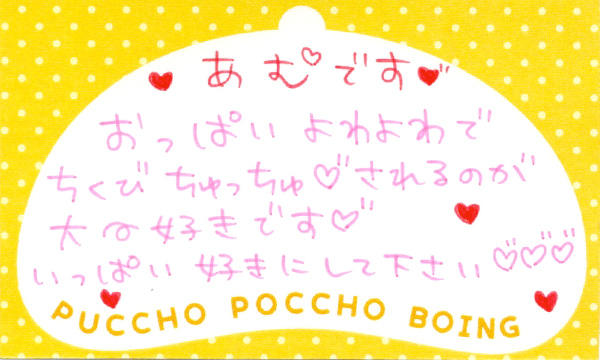 あむ♡です♥
おっぱい よわよわで
ちくび ちゅっちゅ♡されるのが
大好きです♡
いっぱい 好きにして下さい♡♡♡
PUCCHO POCCHO BOING